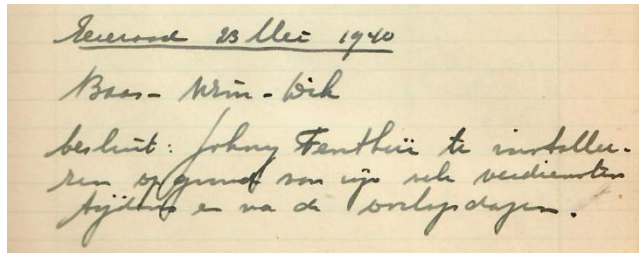 Eereraad 23 Mei 1940
Baas - Wim - Wich
besluit: Johny Fenthin te installe-
ren op grond van zijn vele verdiensten
tijdens en na de oorlogsdagen.